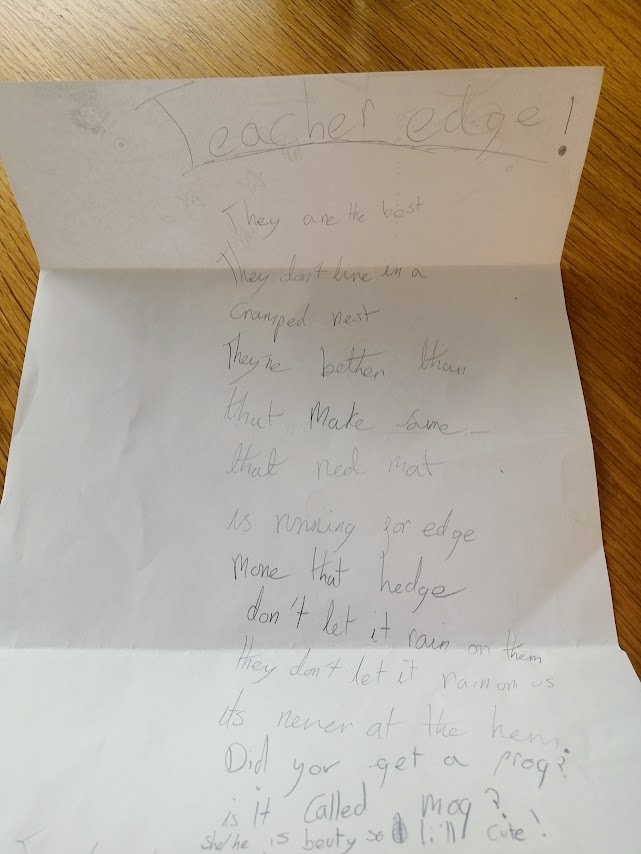 Teacher edge!
They are the best
They don't live in a
cramped nest
They're bether than
that Make sure
that red mat
is running for edge
More that hedge
don't let it rain on them
they don't let it rain on us
its never at the hem.
Did yor get a prog?
is it called mog?
she/he is beuty so lill cite!